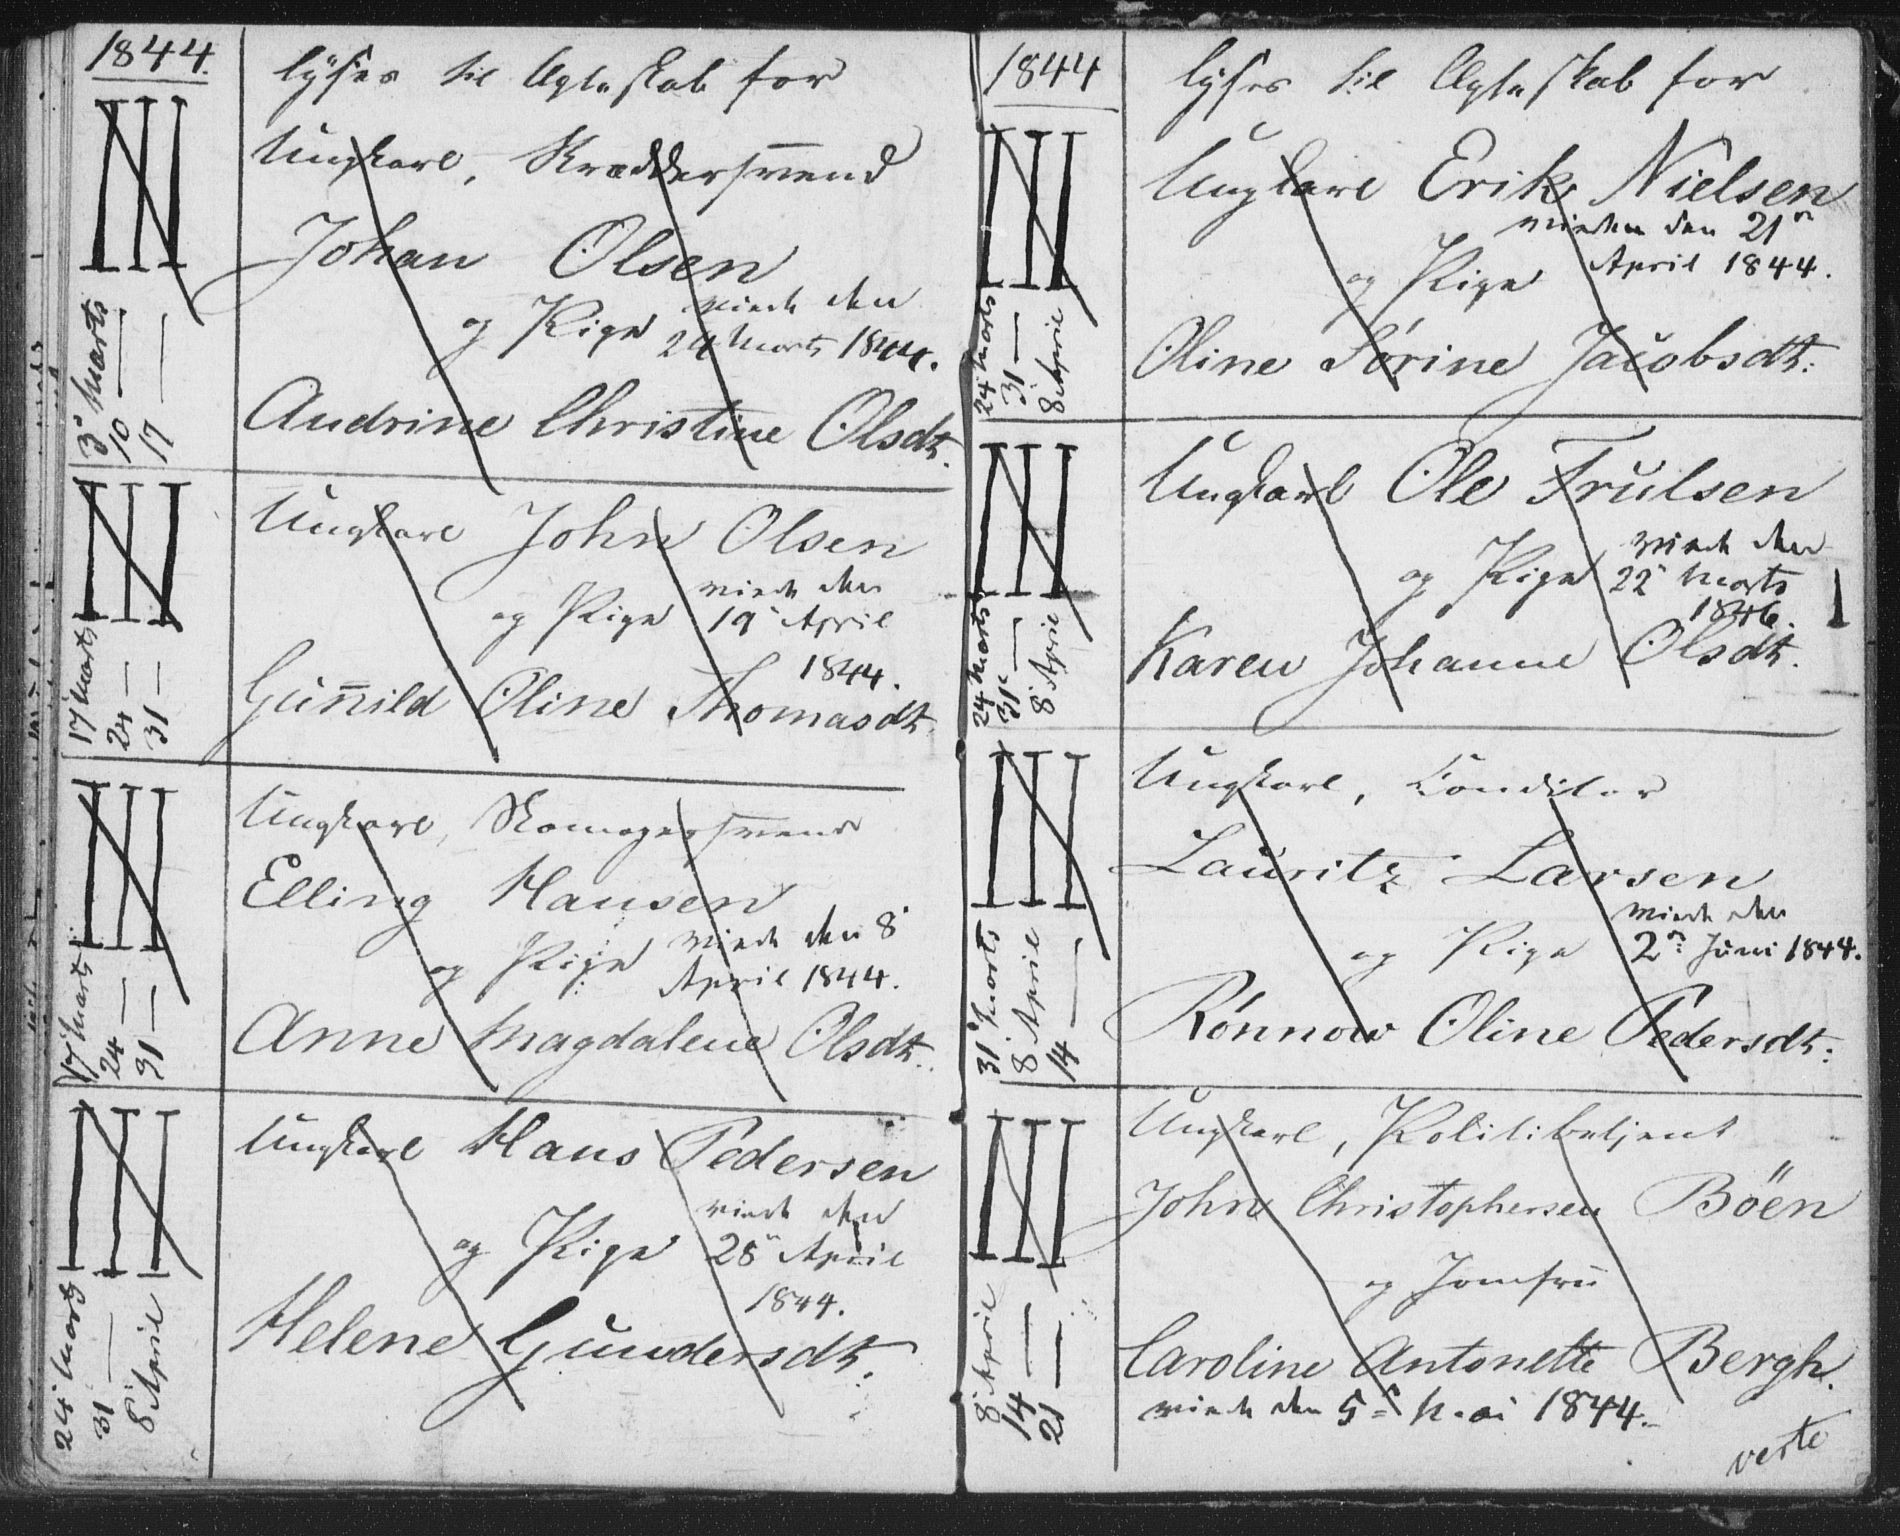 1844.
lyses til Ægteskab for
Ungkarl, Skræddersvend
Johan Olsen
og Pige viede den
24 Marts 1844.
Andrine Christine Olsdtr.
3' Marts
10 —
17 —
Ungkarl John Olsen
og Pige viede den
19' April
1844.
Gun̄ild Oline Thomasdtr.
17' Marts
24 —
31 —
Ungkarl, Skomagersvend
Elling Hansen
og Pige viede den 8'
April 1844.
Anne Magdalene Olsdtr.
17' Marts
24 —
31 —
Ungkarl Hans Pedersen
og Pige viede den
28' April
1844.
Helene Gundersdtr.
24' Marts
31' —
8' April
1844
lyses til Ægteskab for
Ungkarl Erik Nielsen
viede den 21'
April 1844.
og Pige
Oline Sørine Jacobsdtr.
24' Marts
31 —
8' April
Ungkarl Ole Trulsen
og Pige viede den
22' Marts
1846.
Karen Johanne Olsdtr.
24 Marts
31' —
8' April
Ungkarl, Conditor
Lauritz Larsen
viede den
og Pige 2' Juni 1844.
Rönnow Oline Pedersdtr:
31' Marts
8' April
14 —
Ungkarl, Politibetjent
John Christophersen Böen
og Jomfru
Caroline Antonette Bergh.
viede den 5' Mai 1844.
8' April
14 —
21 —
verte